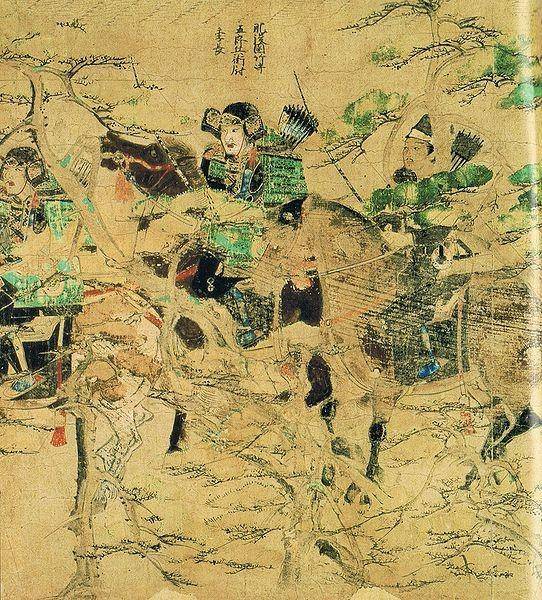 肥後國竹崎
五郎兵衛尉
季長